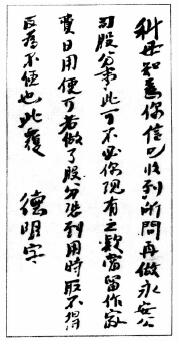 科母知悉你信已收到所問再做永安公
司股分事此可不必你現有之款當留作家
費日用便可若做了股分恐到用時取不得
反為不便也此覆　德明字